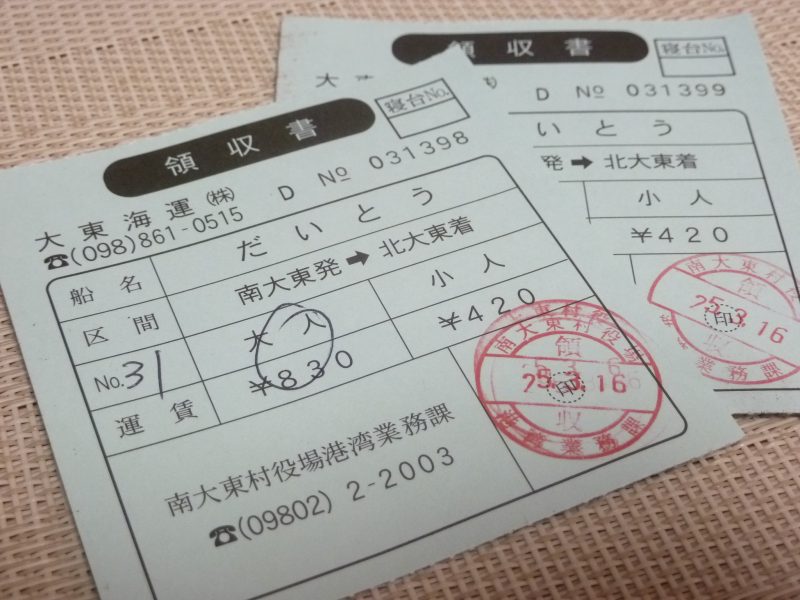 領収書
寝台No.
大東海運㈱
D No 031398
☎(098)861-0515
船名 だいとう
区間 南大東発➡北大東着
No.31 大人 小人
運賃 ¥830 ¥420
南大東村役場港湾業務課
☎(09802) 2-2003
南大東村役場
領
25.3.16
印
収
港湾業務課
領収書
寝台No.
大
D No 031399
いとう
発➡北大東着
小人
¥420
南大東村役
領
25.3.16
印
収
業務課